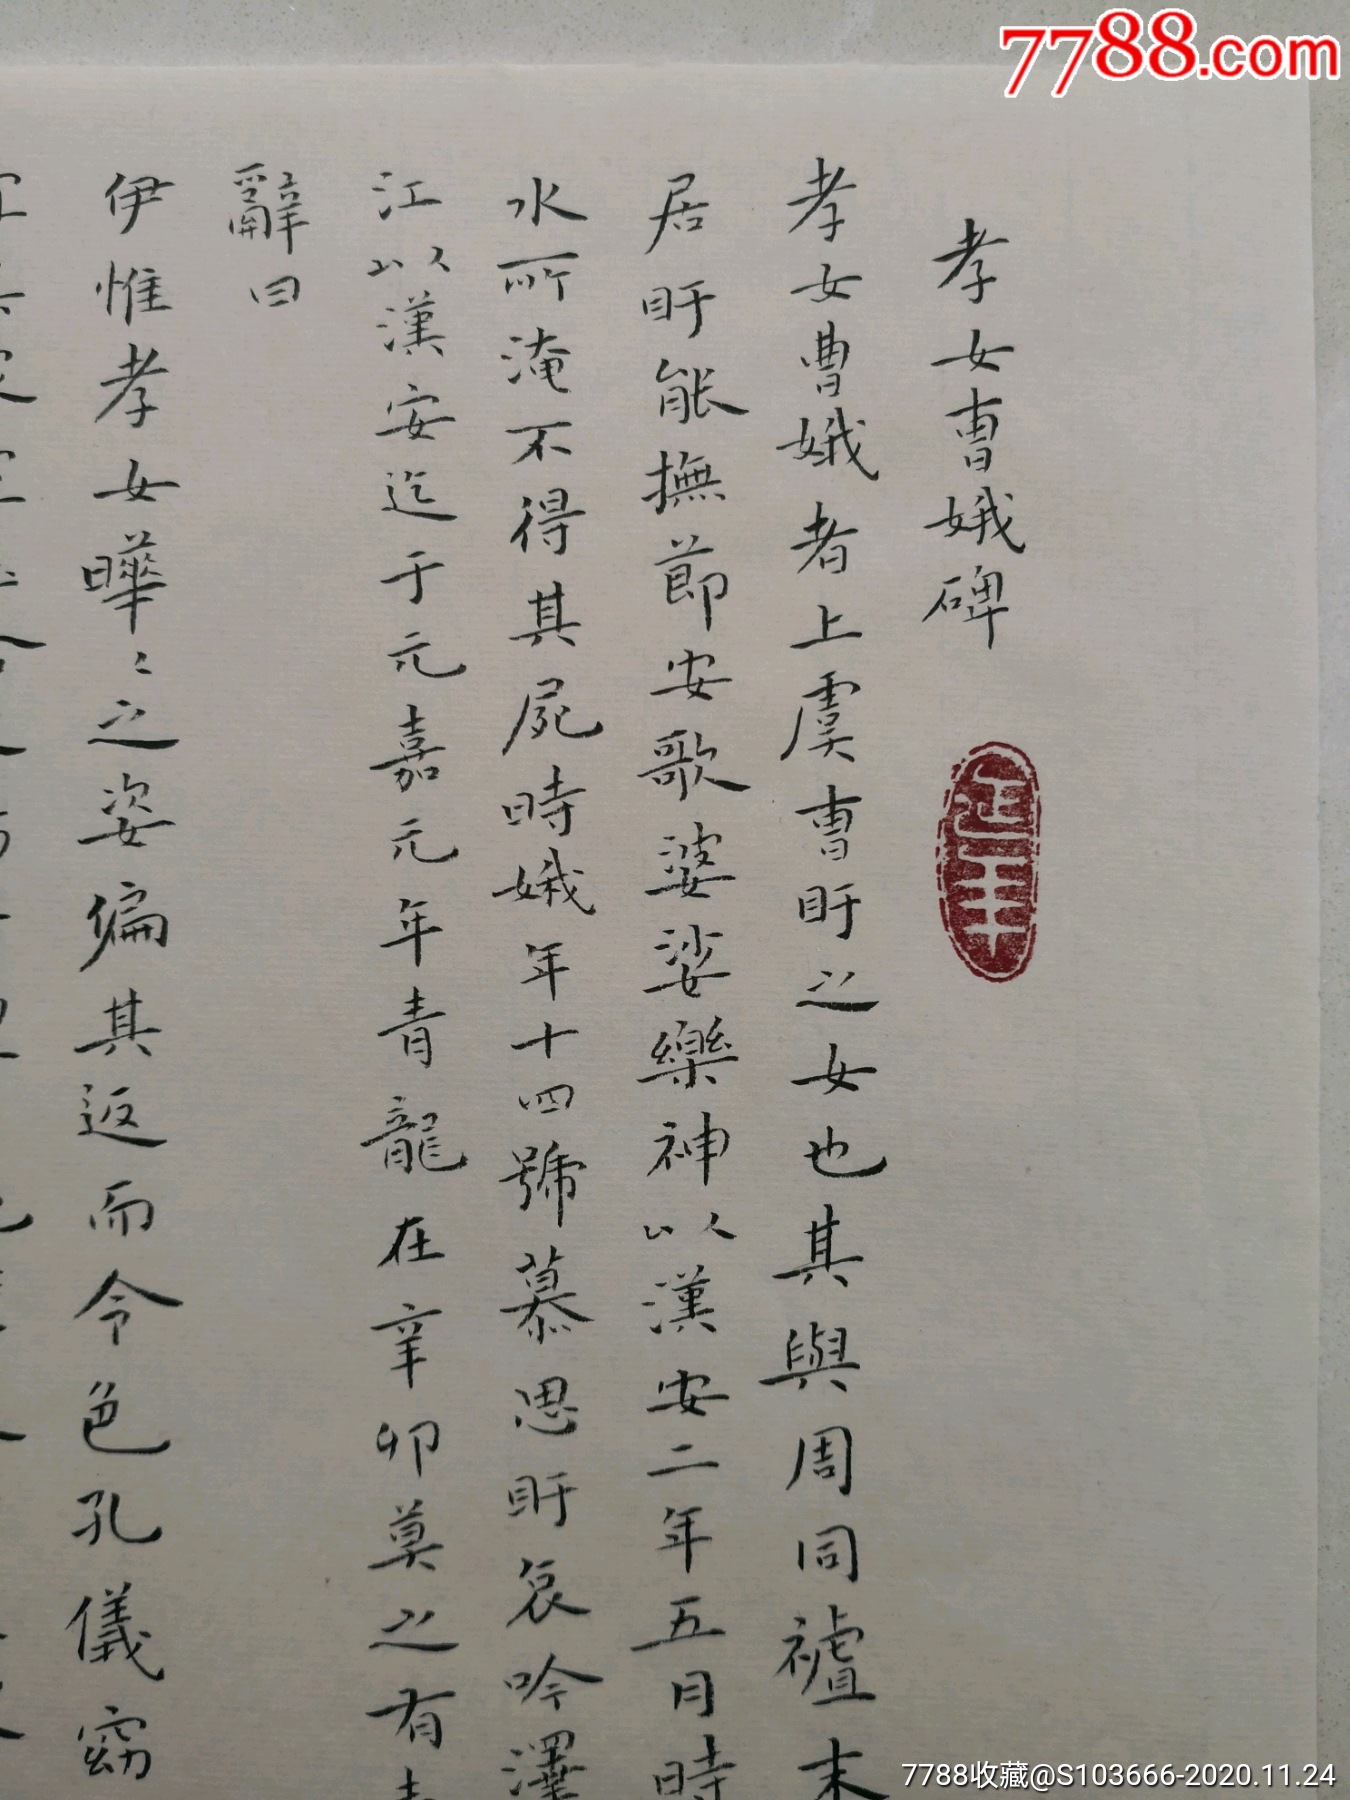 7788.com
孝女曹娥碑
孝女曹娥者上虞曹盱之女也其與周同禇末
居盱能撫節安歌婆娑樂神以漢安二年五月時
水所淹不得其屍時娥年十四號慕思盱哀吟澤
江以漢安迄于元嘉元年青龍在辛卯莫之有
辭曰
伊惟孝女曄〻之姿偏其返而令色孔儀窈
7788收藏@S103666-2020.11.24